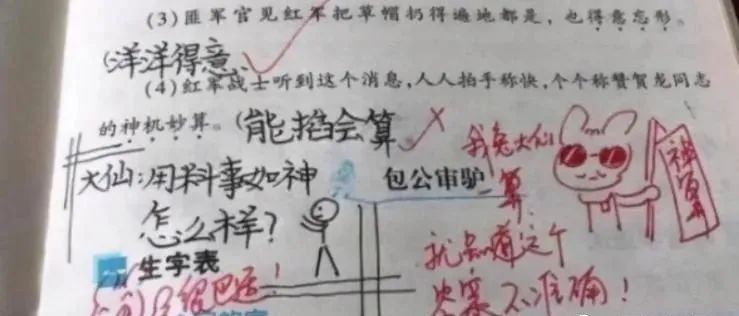 (3)匪军官见红军把草帽扔得遍地都是，也得意忘形。
(洋洋得意)
(4)红军战士听到这个消息，人人拍手称快，个个称赞贺龙同志
的神机妙算。(能掐会算
大仙:用料事如神
怎么样?
包公审驴
我兔大仙
算
就知道这个
答案不准确!
神算
生字表